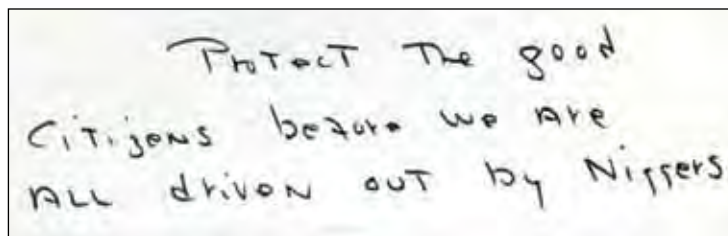 Protect the good
Citizens before we are
ALL driven out by Niggers